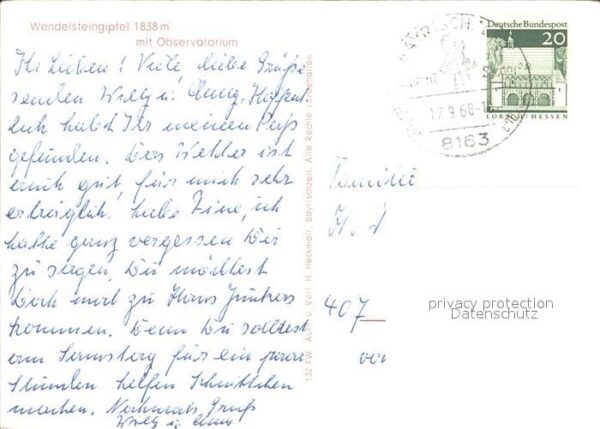 Wendelsteingipfel 1838 m
mit Observatorium
Ihr Lieben! Viele, liebe Grüße
senden Willy u. Anny. Hoffent-
lich habt Ihr meinen Paß
gefunden. Das Wetter ist
auch gut, für mich sehr
erträglich. Liebe Tine, ich
hatte ganz vergessen Dir
zu sagen, Du möchtest
doch mal zu Hans Junkers
kommen. Denn Du solltest
am Samstag für ein paar
Stunden helfen Schnittchen
machen. Nochmals Gruß
Willy u. Anny
132 FW Aufn. u. Verl. H. Heckmair, Bayrischzell. Alle Rechte vorbehalten
BAYRISCHZELL
17.9.68
8163
Deutsche Bundespost
20
LORSCH/HESSEN
Familie
H.
407
privacy protection
Datenschutz